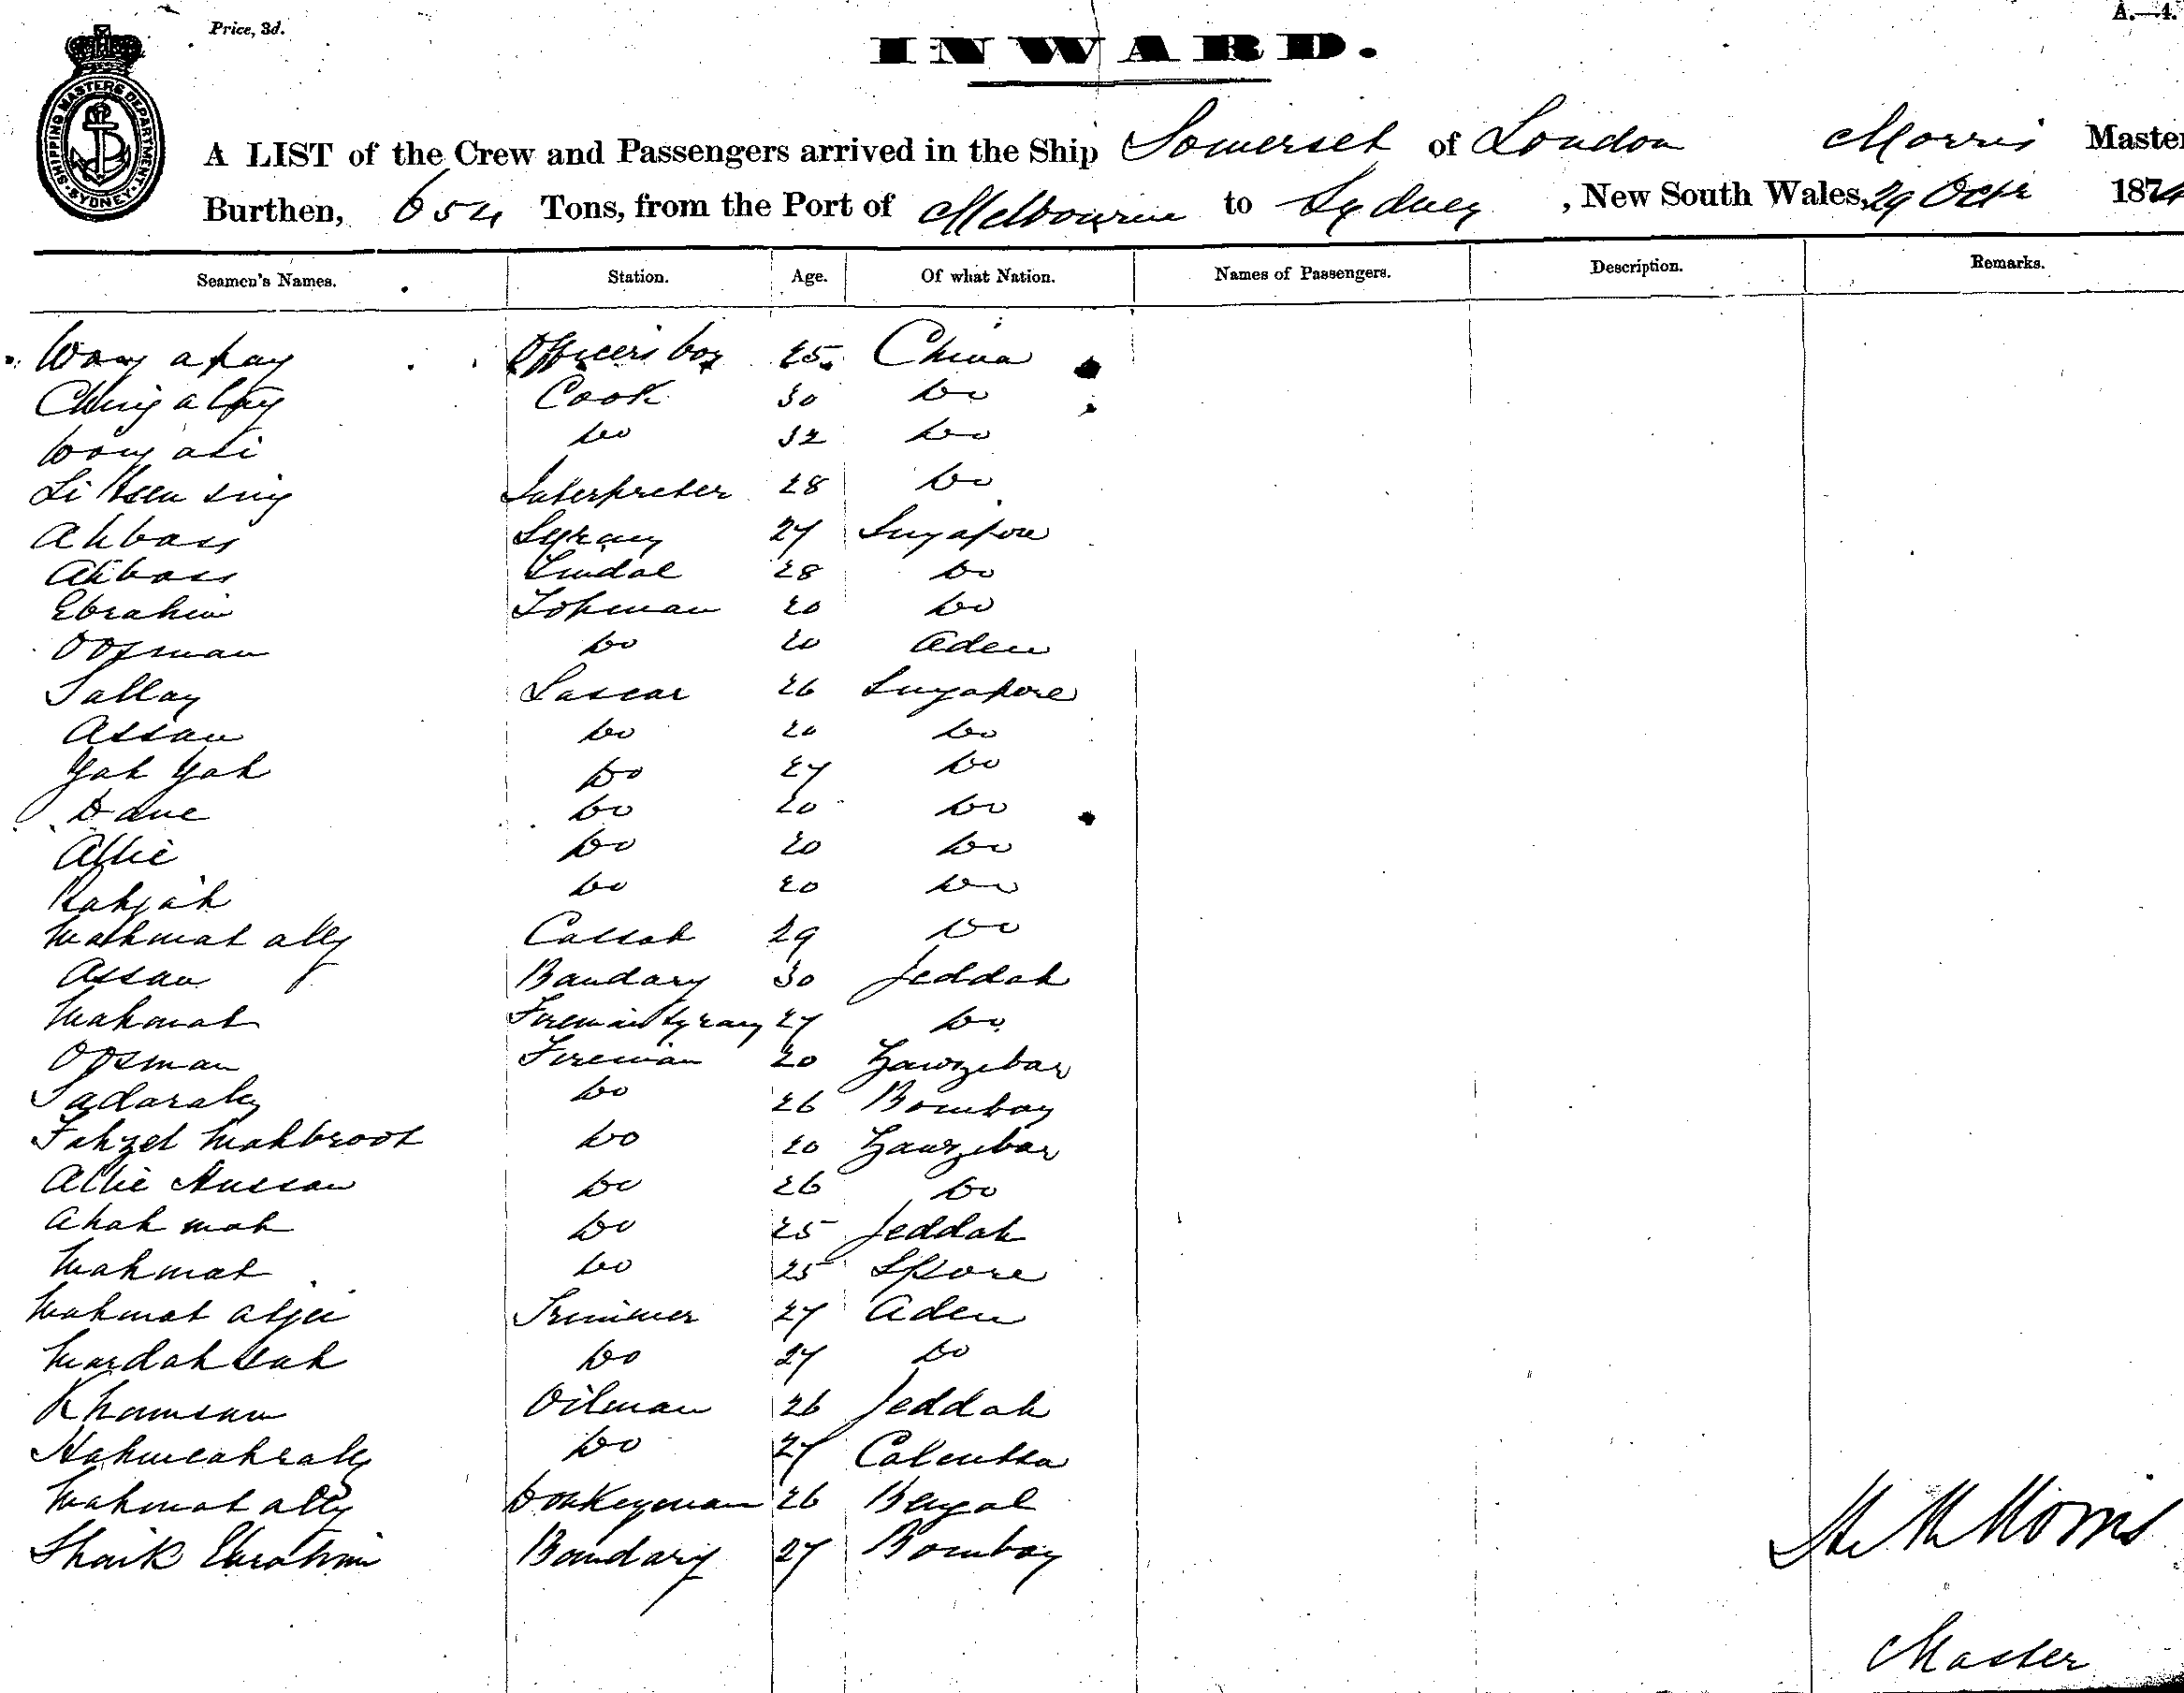 Price, 3d.
A.—4.
INWARD.
SHIPPING MASTERS DEPARTMENT SYDNEY
A LIST of the Crew and Passengers arrived in the Ship Somerset of London Morris Master
Burthen, 654 Tons, from the Port of Melbourne to Sydney, New South Wales, 29 Octr 1874
Seamen's Names. Station. Age. Of what Nation. Names of Passengers. Description. Remarks.
Wong Officers boy 25 China
Ching Cook 30 Do
Wong Do 32 Do
Li sing Interpreter 28 Do
Ahbass Syrang 27 Singapore
Ahbass Tindal 28 Do
Ebrahim Topman 20 Do
Oosman Do 20 Aden
Sallay Lascar 26 Singapore
Assan Do 20 Do
Yah Yah Do 27 Do
Dane Do 20 Do
Allie Do 20 Do
Rahjah Do 20 Do
Mahmat ally Cassab 29 Do
Assan Bandary 30 Jeddah
Mahmat Fireman Syrang 27 Do
Oosman Fireman 20 Zanzibar
Do 26 Bombay
Mahbroot Do 20 Zanzibar
Allie Hussan Do 26 Do
Ahah mah Do 25 Jeddah
Mahmat Do 25 Spore
Mahmat Trimmer 27 Aden
Do 27 Do
Khamsan Oilman 26 Jeddah
Do 27 Calcutta
Mahmat ally Donkeyman 26 Bengal
Shaik Ebrahim Bandary 27 Bombay
Morris
Master